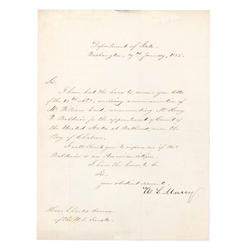 Department of State,
Washington, January, 1855.
Sir,
I have had the honor to receive your letter
of the inst. a communication of
Mr William recommending Mr Henry
P. Baldwin for the appointment of Consul of
the United States at in the
Bay of
I will thank you to inform me if Mr
Baldwin is an American citizen.
I have the honor to be
Sir
your obedient servant
W. L. Marcy
Hon. Charles Sumner
of the U. S. Senate.